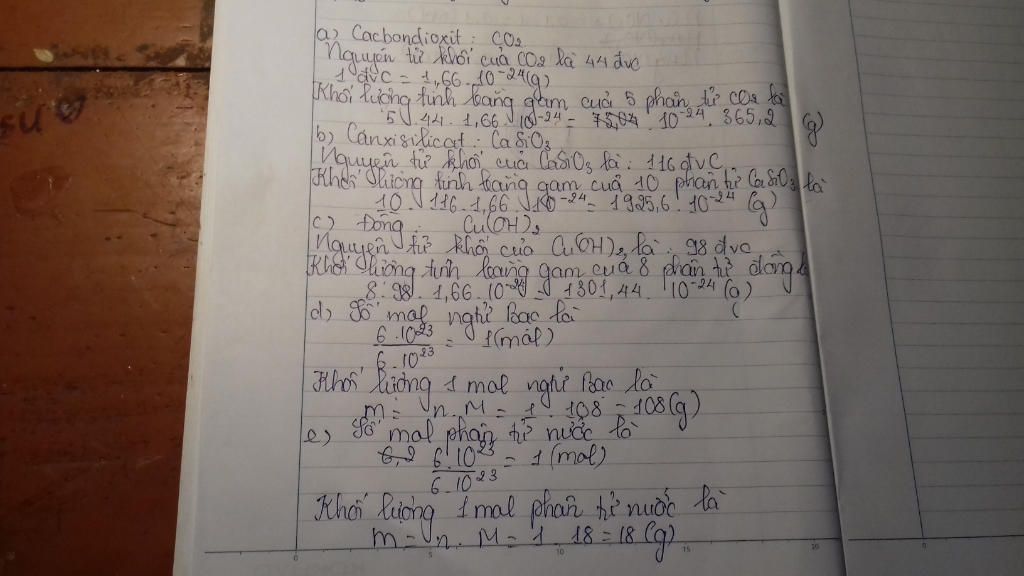 a) Cacbondioxit : CO₂
Nguyên tử khối của CO₂ là 44 đvC
1 đvC = 1,66 . 10⁻²⁴(g)
Khối lượng tính bằng gam của 5 phân tử CO₂ là
5 . 44 . 1,66 . 10⁻²⁴ = . 10⁻²⁴ . 365,2 (g)
b) Canxisilicat : CaSiO₃
Nguyên tử khối của CaSiO₃ là : 116 đvC
Khối lượng tính bằng gam của 10 phân tử CaSiO₃ là
10 . 116 . 1,66 . 10⁻²⁴ = 1925,6 . 10⁻²⁴ (g)
c) Đồng : Cu(OH)₂
Nguyên tử khối của Cu(OH)₂ là : 98 đvC
Khối lượng tính bằng gam của 8 phân tử đồng
8 . 98 . 1,66 . 10⁻²⁴ = 1301,44 . 10⁻²⁴ (g)
d) Số mol ngtử Bạc là
6 . 10²³ / 6 . 10²³ = 1 (mol)
Khối lượng 1 mol ngtử Bạc là
m = n . M = 1 . 108 = 108 (g)
e) Số mol phân tử nước là
6,2 6 . 10²³ / 6 . 10²³ = 1 (mol)
Khối lượng 1 mol phân tử nước là
m = n . M = 1 . 18 = 18 (g)
0 5 10 15 20 0